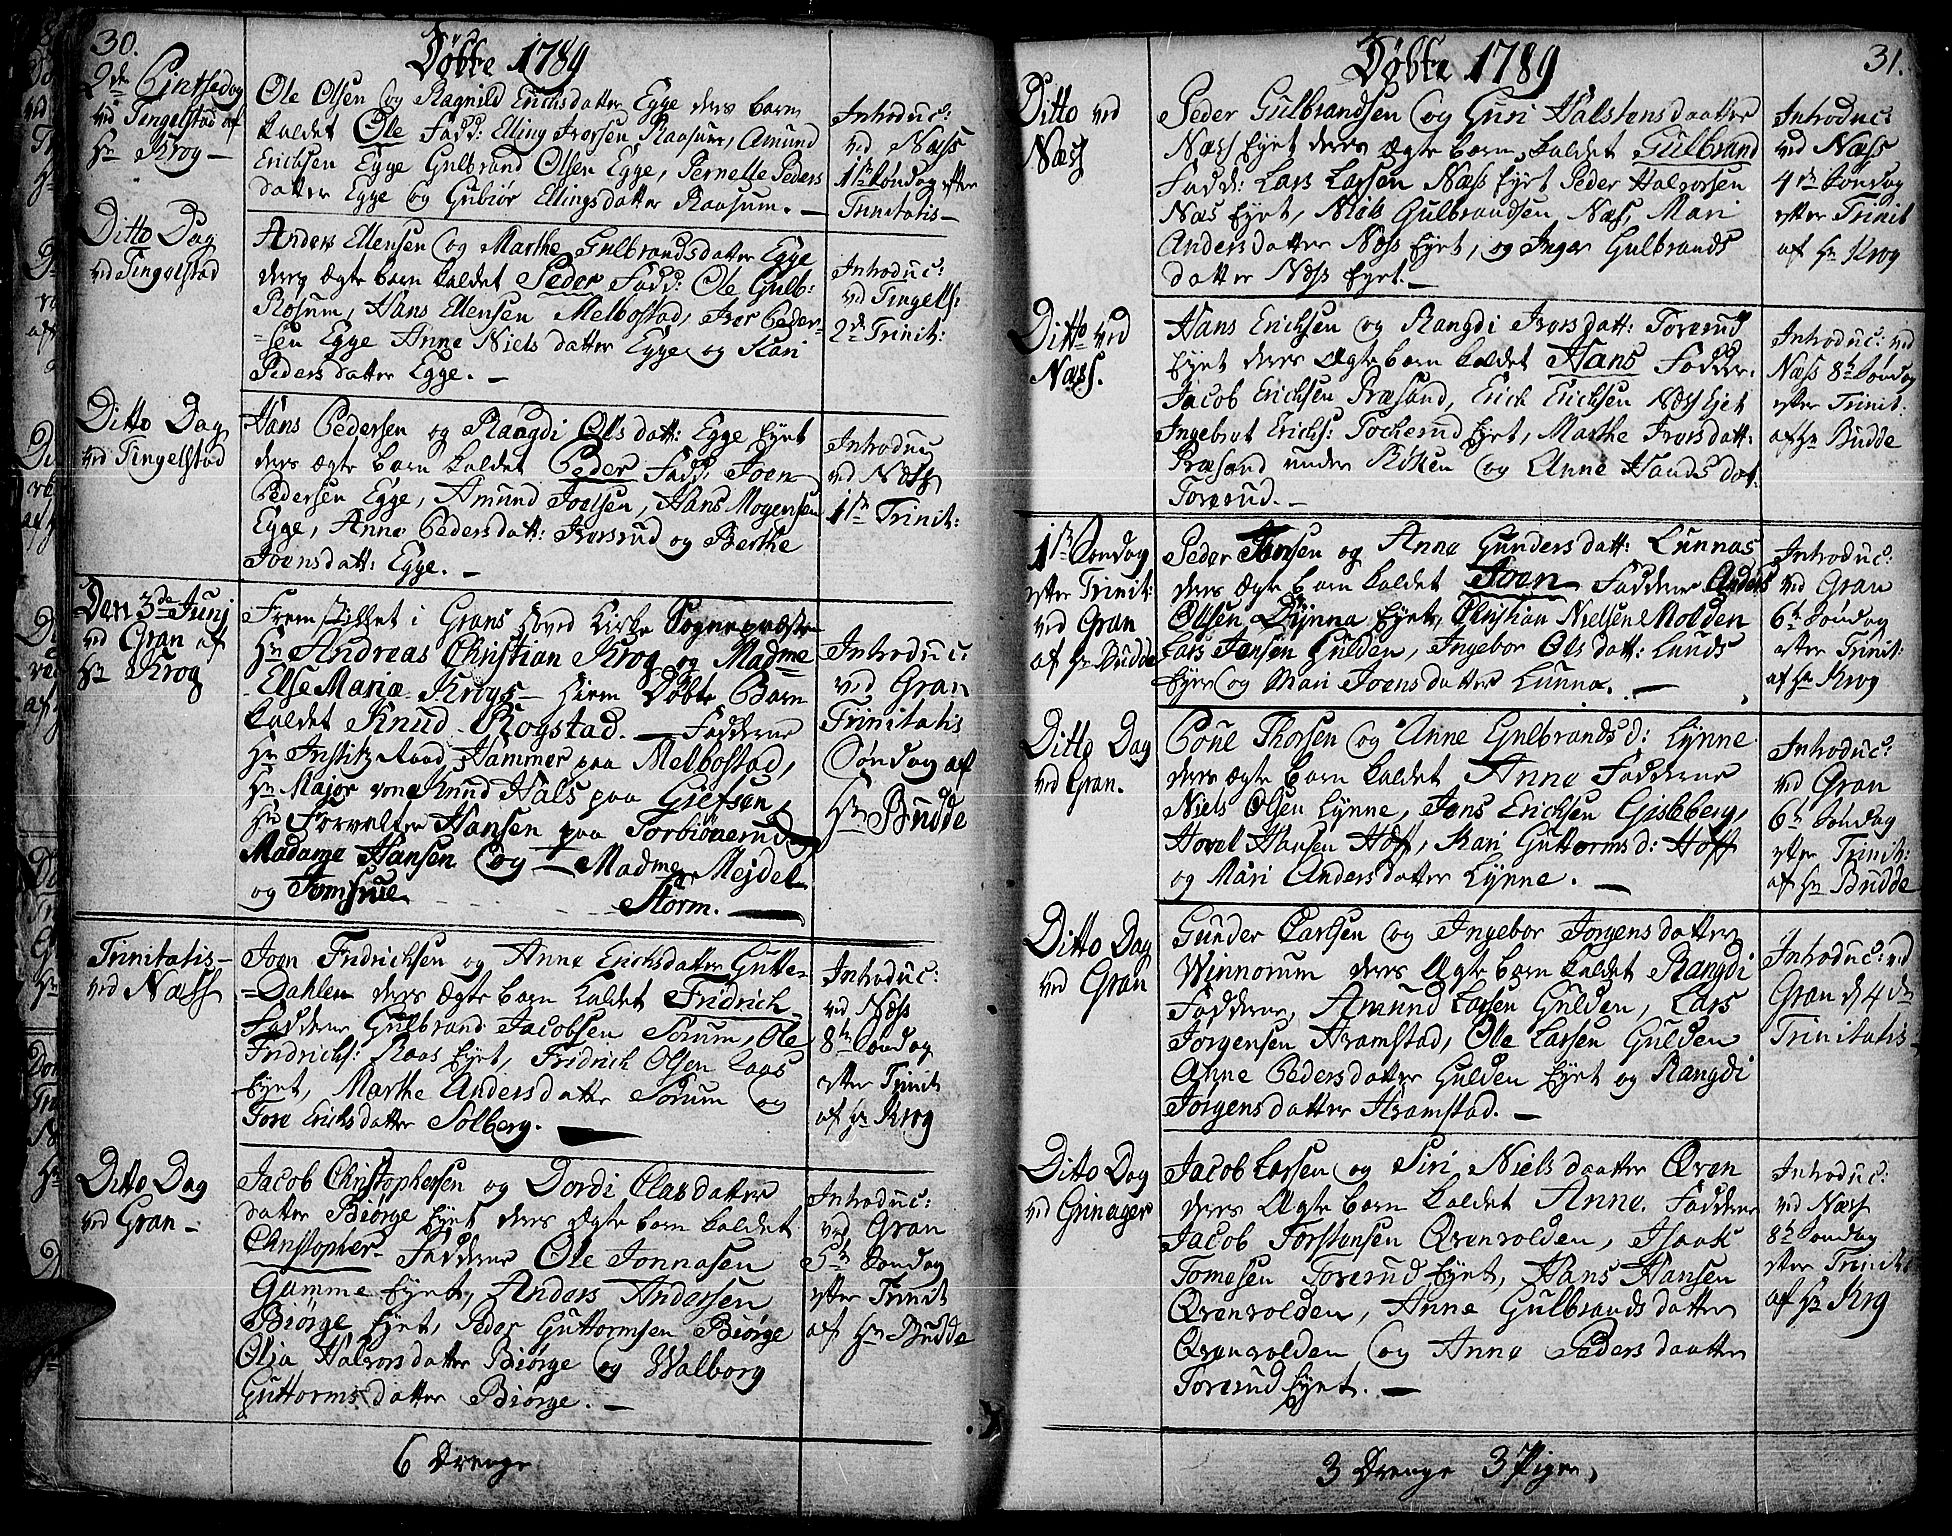 30.
Döbte 1789
2den Pintsedag
ved Tingelstad af
Hr Krog —
Ole Olsen og Ragnild Erichsdatter Egge ders barn
kaldet Ole Fadd: Elling Iversen Raasum, Amund
Erichsen Egge Gulbrand Olsen Egge, Pernelle Peders
datter Egge og Gubiør Ellingsdatter Raasum. —
Introduc:
ved Næss
1ste Søndag efter
Trinitatis —
Ditto Dag
ved Tingelstad
Anders Ellensen og Marthe Gulbrandsdatter Egge
ders ægte barn kaldet Peder Fadd: Ole Gulb:
Rosum, Hans Ellensen Melbostad, Iver Peder-
-sen Egge Anne Niels datter Egge og Kari
Peders datter Egge. —
Introduc:
ved Tingels:
2de Trinit:
Ditto Dag
ved Tingelstad
Hans Pedersen og Rangdi Olsdatt: Egge Eyet
ders ægte barn kaldet Peder Fadd: Joen
Pedersen Egge, Amund Joelsen, Hans Mogensen
Egge, Anne Pedersdatt: Iversrud og Berthe
Joensdatt: Egge. —
Introduc
ved Næss
1ste Trinit:
Den 3de Junj
ved Gran af
Hr Krog
Fremstillet i Grans Hoved Kirke Sognepræst
Hr Andreas Christian Krog og Madme
Else Maria Krogs — hiem Døbte Barn
kaldet Knud Rogstad. — Fadderne
Hr Justitz Raad Hammer paa Melbostad,
Hr Major von Knud Hals paa Gjefsen
Hr Forvalter Hansen paa Torbiönerud
Madame Hansen og — Madme Mejdel
og Jomfrue Storm. —
Introduc:
ved Gran
Trinitatis
Søndag af
Hr Budde
Trinitatis —
ved Næss
Joen Fridrichsen og Anne Erichsdatter Gutte-
-Dahlen ders ægte barn kaldet Fridrich
Faddere Gulbrand Jacobsen Sorum, Ole
Fridrichs: Raas Eyet, Fridrich Olsen Raas
Eyet, Marthe Andersdatter Sorum og
Tore Erichsdatter Solberg. —
Introduc:
ved Næss
8de Søndag
efter Trinit
af Hr Krog
Ditto Dag
ved Gran —
Jacob Christophersen og Dordi Clasdatter
datter Biørge Eyet ders ægte barn kaldet
Christopher Fadderne Ole Jonnasen
Gamme Eyet, Anders Andersen
Biørge Eyet, Peder Guttormsen Biørge
Olia Halvorsdatter Biørge og Walborg
Guttormsdatter Biørge. —
Introduc:
ved Gran
5te Søndag
efter Trinit
af Hr Budde
6 Drenge
Döbte 1789
31.
Ditto ved
Næss
Peder Gulbrandsen og Guri Halstensdaatter
Næss Eyet deres Ægte barn kaldet Gulbrand
Fadd: Lars Larsen Næss Eyet Peder Halvorsen
Næs Eyet, Niels Gulbrandsen Næs, Mari
Andersdatter Næss Eyet, og Inger Gulbrands
datter Næss Eyet. —
Introduc:
ved Næss
4de Søndag
efter Trinit
af Hr Krog
Ditto ved
Næss.
Hans Erichsen og Rangdi Iversdatt: Torerud
Eyet deres Ægte barn kaldet Hans Fadder.
Jacob Erichsen Præsand, Erich Erichsen Næss Eyet
Ingebret Erichs: Tockerud Eyet, Marthe Iversdatt:
Præsand under Röken og Anne Hansdat.
Torerud. —
Introduc: ved
Næss 8de Søndag
efter Trinit:
af Hr Budde
1ste Søndag
efter Trinit:
ved Gran
af Hr Budde
Peder Joensen og Anne Gundersdatt: Lunnas
ders Ægte barn kaldet Joen Faddere Anders
Olsen Dynna Eyet, Christian Nielsen Molden
Lars Jensen Gulden, Ingebor Olsdatt: Lunds
Eyer og Mari Joensdatter Lunna. —
Introduc:
ved Gran
6te Søndag
efter Trinit:
af Hr Krog
Ditto Dag
ved Gran.
Poul Thorsen og Anne Gulbrandsd: Lynne
ders Ægte barn kaldet Anne Faddere
Niels Olsen Lynne, Jens Erichsen Gisleberg,
Hovel Hansen Hoff, Kari Guttormsd: Hoff
og Mari Andersdatter Lynne. —
Introduc:
ved Gran
6te Søndag
efter Trinit:
af Hr Budde
Ditto Dag
ved Gran
Gunder Larsen og Ingebor Jorgensdatter
Winnorum ders Ægte barn kaldet Rangdi
Faddere, Amund Larsen Gulden, Lars
Jorgensen Framstad, Ole Larsen Gulden
Anne Pedersdatter Gulden Eyet og Rangdi
Jorgensdatter Framstad. —
Introduc: ved
Gran d 4de
Trinitatis —
Ditto Dag
ved Grinager
Jacob Larsen og Siri Nielsdaatter Qven
ders Ægte barn kaldet Anne. Faddere
Jacob Torstensen Qvenvolden, Isaak
Tomesen Torerud Eyet, Hans Hansen
Qvenvolden, Anne Gulbrandsdatter
Qvenvolden og Anne Pedersdaatter
Torerud Eyet. —
Introduc:
ved Næss
8de Søndag
efter Trinit:
af Hr Krog
3 Drenge 3 Piger,